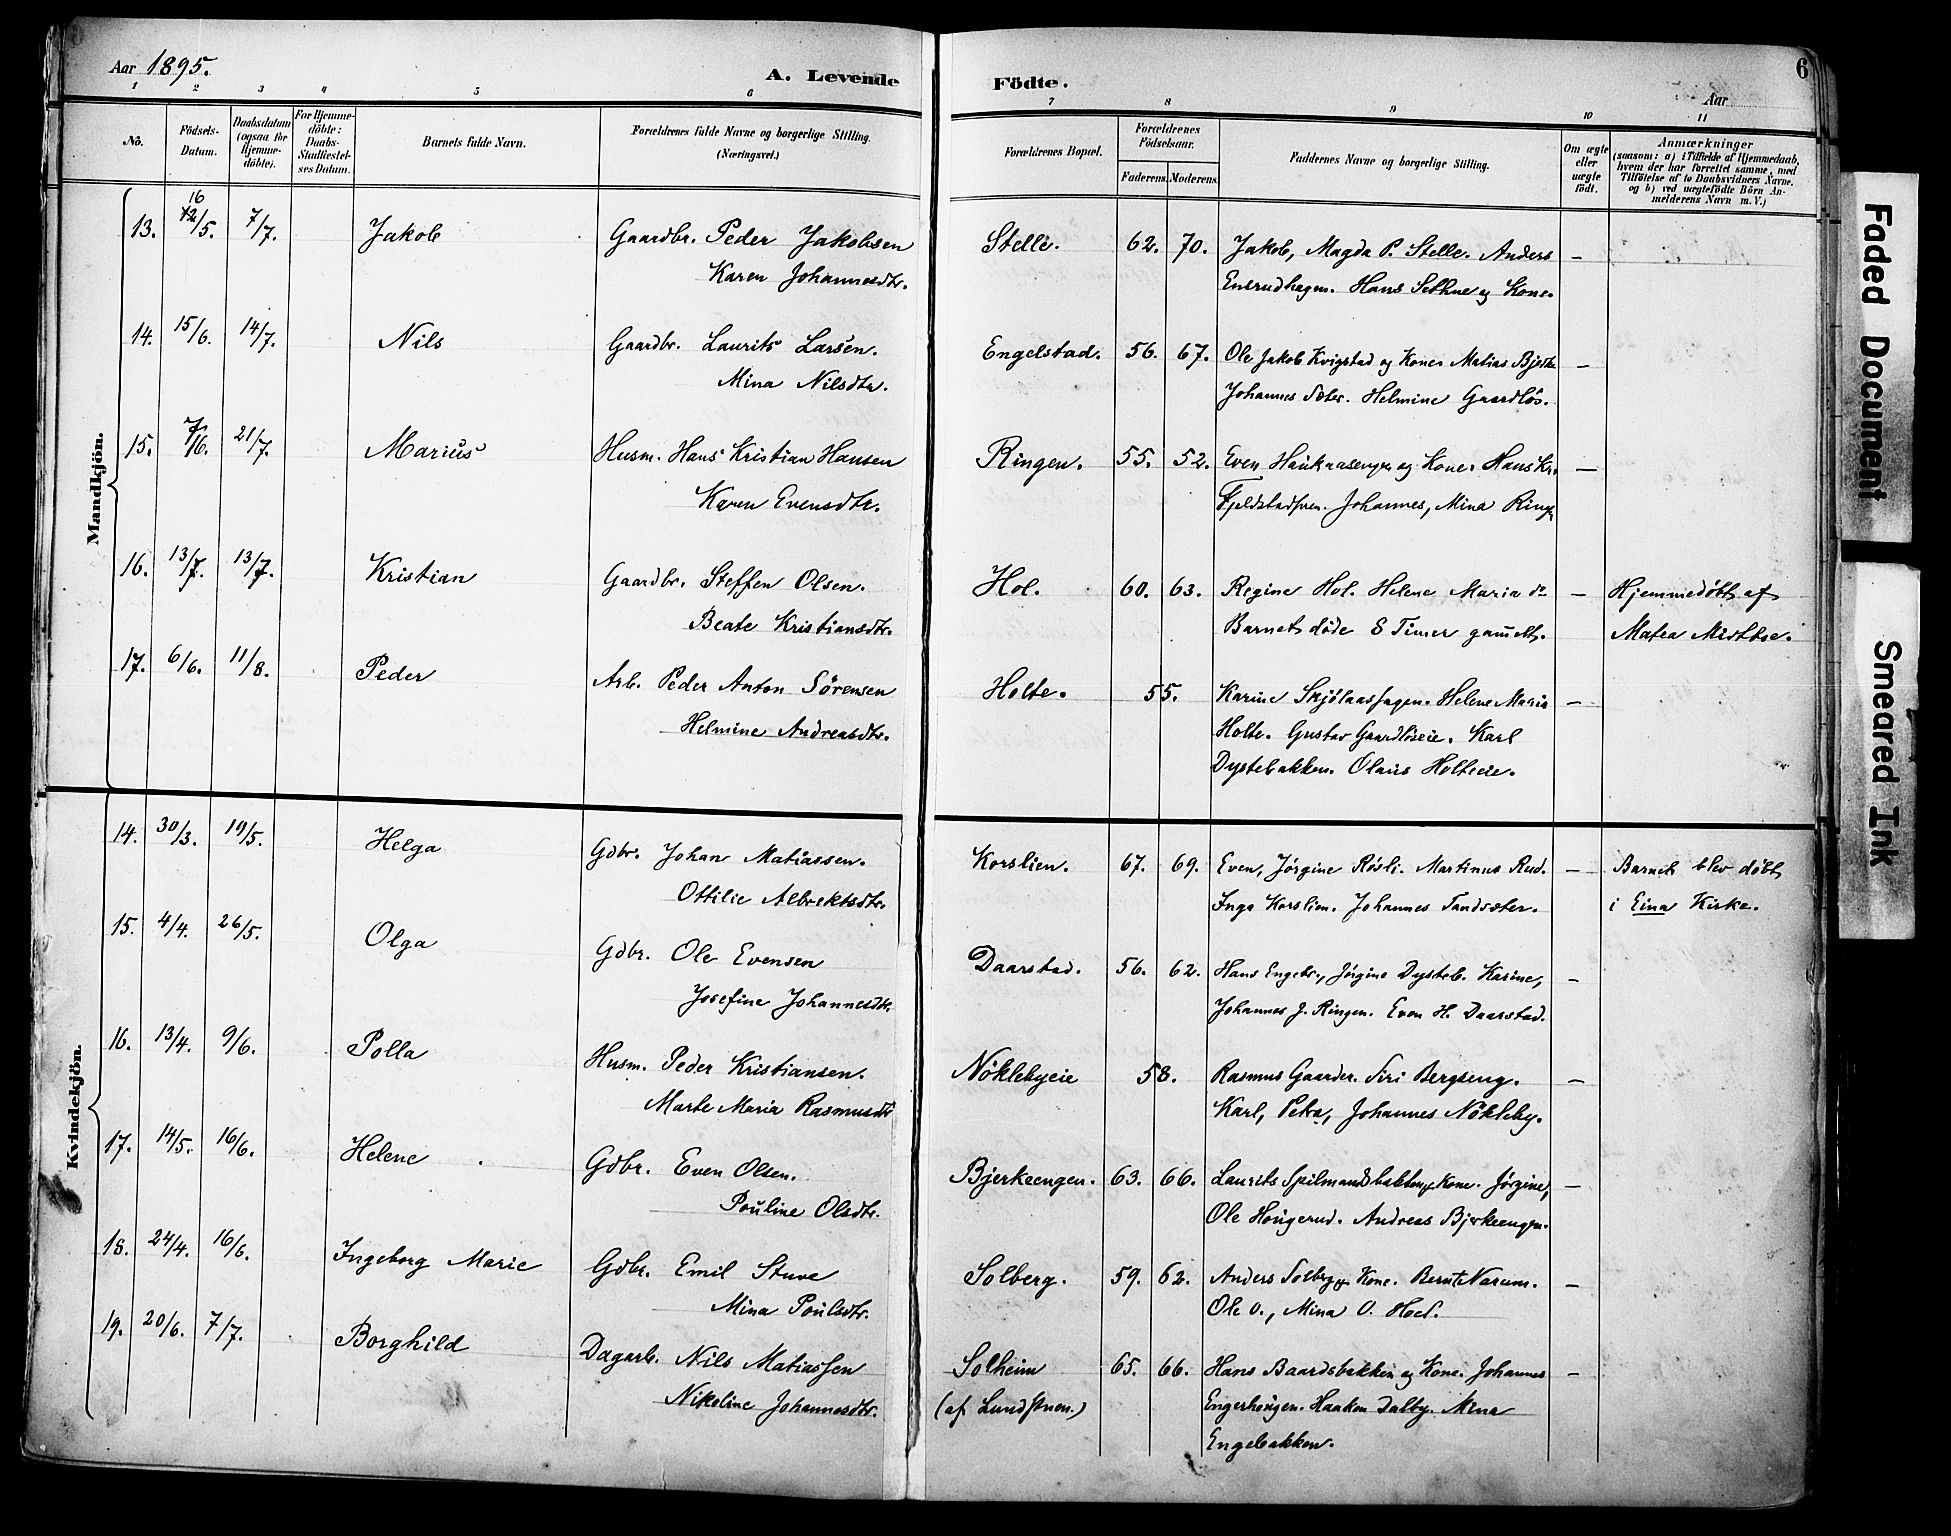 Aar 1895.
A. Levende
Födte.
Aar
6
1 2 3 4 5 6 7 8 9 10 11
No.
Födsels-Datum.
Daabsdatum (ogsaa for Hjemmedöbte).
For Hjemmedöbte: Daabs-Stadfæstelses Datum.
Barnets fulde Navn.
Forældrenes fulde Navne og borgerlige Stilling.
(Næringsvei.)
Forældrenes Bopæl.
Forældrenes Födselsaar.
Faderens. Moderens.
Faddernes Navne og borgerlige Stilling.
Om ægte eller uægte født.
Anmærkninger
(saasom: a) i Tilfælde af Hjemmedaab,
hvem der har forrettet samme, med
Tilföielse af to Daabsvidners Navne,
og b) ved uægtefödte Börn An-
melderens Navn m. V.)
Mandkjön.
13. 16 12/5. 7/7. Jakob Gaardbr. Peder Jakobsen Stelle. 62. 70. Jakob, Magda P. Stelle. Anders —
Karen Johannesdtr. Ensrudhagen. Hans Sethne og Kone.
14. 15/6. 14/7. Nils Gaardbr. Laurits Larsen. Engelstad. 56. 67. Ole Jakob Kvigstad og Kone. Matias —
Mina Nilsdtr. Johannes Sæter. Helmine Gaardløs.
15. 7/6. 21/7. Marius Husm. Hans Kristian Hansen Ringen. 55. 52. Even og Kone. Hans Kr. —
Karen Evensdtr. Johannes, Mina Ring
16. 13/7. 13/7. Kristian Gaardbr. Steffen Olsen. Hol. 60. 63. Regine Hol. Helene Maria do — Hjemmedøbt af
Beate Kristiansdtr. Barnet døde 8 Timer gamelt. Matea
17. 6/6. 11/8. Peder Arb. Peder Anton Sörensen Holte. 55. Karine Helene Maria —
Helmine Andreasdtr. Holte. Gustav Gaardløseie. Karl
Dystebakken. Olaus Holteeie.
Kvindekjön.
14. 30/3. 19/5. Helga Gdbr. Johan Matiassen. Korslien. 67. 69. Even, Jørgine Røsli. Martinus Rud. — Barnet blev døbt
Ottilie Albrektsdtr. Inga Korslien. Johannes Tandsæter. i Eina Kirke.
15. 4/4. 26/5. Olga Gdbr. Ole Evensen Daarstad. 56. 62. Hans Engebr., Jørgine Dysteb. Karine, —
Josefine Johannesdtr. Johannes J. Ringen. Even H. Daarstad.
16. 13/4. 9/6. Polla Husm. Peder Kristiansen. Nöklebyeie 58. Rasmus Gaarder. Siri Bergseng. —
Marte Maria Rasmusdtr Karl, Petra, Johannes Nökleby.
17. 14/5. 16/6. Helene Gdbr. Even Olsen. Bjerkeengen. 63. 66. Laurits Spilmandsbakken og Kone. Jørgine, —
Pouline Olsdtr. Ole Hougerud. Andreas Bjerkeengen.
18. 24/4. 16/6. Ingeborg Marie Gdbr. Emil Stuve Solberg. 59. 62. Anders Solberg og Kone. Bernt Narum. —
Mina Poulsdtr. Ole O., Mina O. Hoel.
19. 20/6. 7/7. Borghild Dagarb. Nils Matiassen Solheim 65. 66. Hans Baardsbakken og Kone. Johannes —
Nikoline Johannesdtr. (af Lundstuen.) Engerhougen. Haakon Dalby. Mina
Engebakken.
Faded Document
Smeared Ink